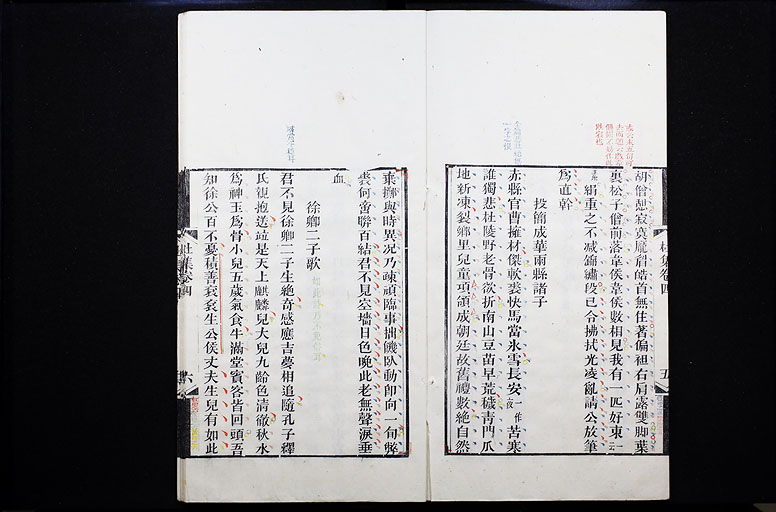 胡僧憩寂寞龐眉皓首無住著偏袒右肩露雙脚葉
裏松子僧前落韋侯韋侯數相見我有一匹好東
絹重之不减錦繡段已令拂拭光凌亂請公放筆
為直幹
投簡成華兩縣諸子
赤縣官曹擁材傑軟裘快馬當氷雪長安苦寒
誰獨悲杜陵野老骨欲折南山豆苗早荒穢青門瓜
地新凍裂鄉里兒童項領成朝廷故舊禮數絶自然
棄擲與時異况乃疎頑臨事拙饑臥動即向一旬弊
裘何啻聯百結君不見空墻日色晚此老無聲淚垂
血
徐卿二子歌
君不見徐卿二子生絶奇感應吉夢相追隨孔子釋
氏親抱送並是天上麒麟兒大兒九齡色清徹秋水
為神玉為骨小兒五歲氣食牛滿堂賓客皆回頭吾
知徐公百不憂積善衮衮生公侯丈夫生兒有如此
杜集卷四
五
杜集卷四
六